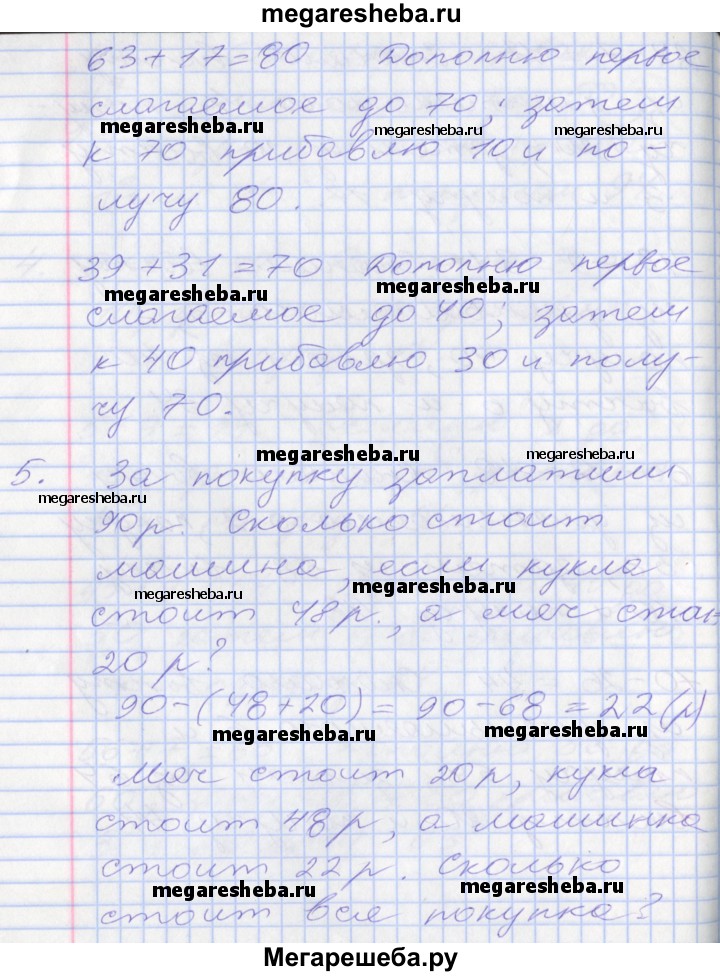 megaresheba.ru
63+17=80 Дополню первое
слагаемое до 70, затем
megaresheba.ru megaresheba.ru megaresheba.ru
к 70 прибавлю 10 и по-
лучу 80.
39+31=70 Дополню первое
megaresheba.ru megaresheba.ru
слагаемое до 40, затем
к 40 прибавлю 30 и полу-
чу 70.
megaresheba.ru
5. За покупку заплатили
megaresheba.ru megaresheba.ru
90 р. Сколько стоит
машина, если кукла
megaresheba.ru megaresheba.ru
стоит 48 р., а мяч
20 р?
90-(48+20)=90-68=22(р)
megaresheba.ru megaresheba.ru
Мяч стоит 20 р, кукла
стоит 48 р, а машинка
megaresheba.ru
стоит 22 р. Сколько
megaresheba.ru megaresheba.ru
стоит вся покупка?
Мегарешеба.ру